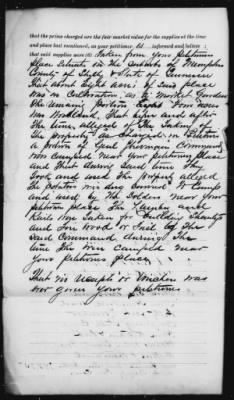 that the prices charged are the fair market value for the supplies at the time
and place last mentioned, as your petitioner is informed and believes;
that said supplies were taken from your petitioner
place situate in the suburbs of Memphis
County of Shelby & State of Tennessee
That about eight acres of said place
was in cultivation as a Market Garden
the remaining portion
was Woodland, that before and after
the time alleged of the taking of
the property as charged in Petition
a portion of Genl Command
was camped near your petitioners place
and that during said time they
took and used the property alleged
the potatoes were dug carried to Camp
and used by the Soldiers near your
petitioners place the lumber and
Rails were taken for building
and for wood or fuel by the
said Command during the
time they were camped near
your petitioners place
That no receipt or voucher was
ever given your petitioner